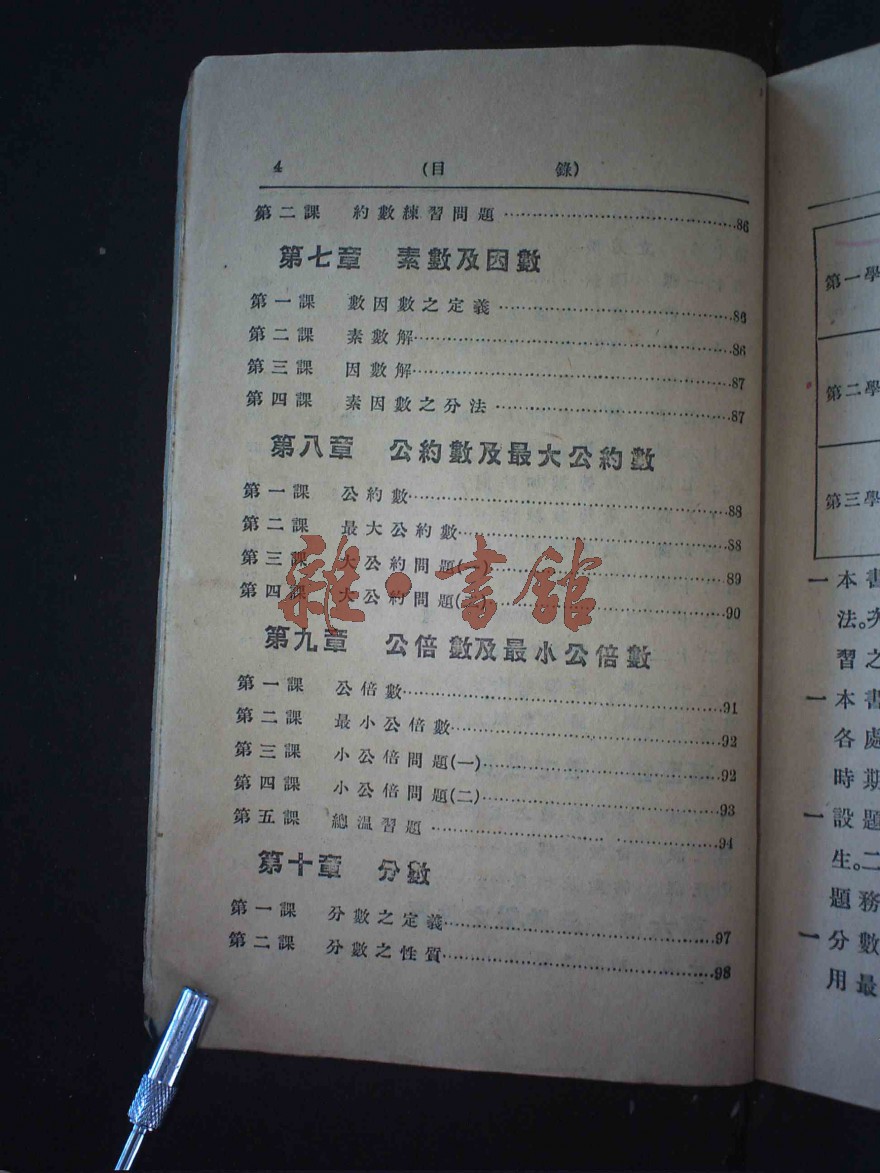 4 (目 錄)
第二課 約數練習問題 86
第七章 素數及因數
第一課 數因數之定義 86
第二課 素數解 86
第三課 因數解 87
第四課 素因數之分法 87
第八章 公約數及最大公約數
第一課 公約數 88
第二課 最大公約數 88
第三課 大公約問題(一) 89
第四課 大公約問題(二) 90
雜·書館
第九章 公倍數及最小公倍數
第一課 公倍數 91
第二課 最小公倍數 92
第三課 小公倍問題(一) 92
第四課 小公倍問題(二) 93
第五課 總温習題 94
第十章 分數
第一課 分數之定義 97
第二課 分數之性質 98
第一學
第二學
第三學
一本書
法。
習之
一本書
各處
時期
一設題
生。二
題務
一分數
用最